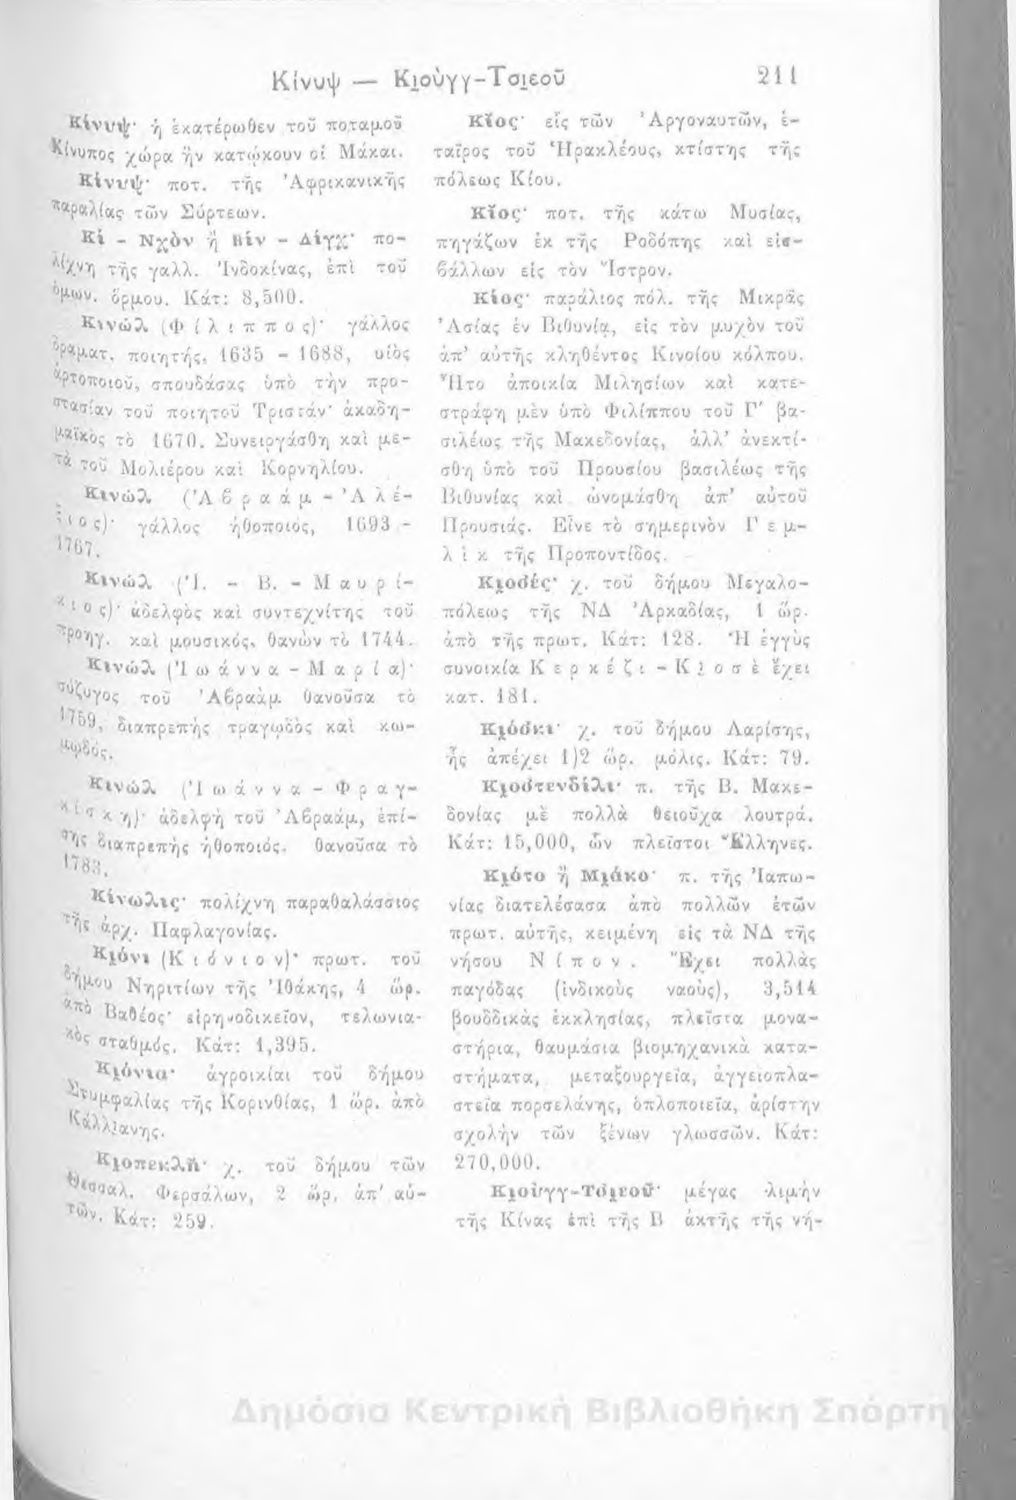 Κίνυψ — Κι̯οὺγγ-Τσι̯εοῦ 211
Κίνυψ· ἡ ἑκατέρωθεν τοῦ ποταμοῦ
Κίνυπος χώρα ἣν κατῴκουν οἱ Μάκαι.
Κίνυψ· ποτ. τῆς Ἀφρικανικῆς
παραλίας τῶν Σύρτεων.
Κὶ - Νχὸν ἢ Βὶν - Δίγχ· πο-
λίχνη τῆς γαλλ. Ἰνδοκίνας, ἐπὶ τοῦ
ὁμων. ὅρμου. Κάτ: 8,500.
Κινὼλ (Φίλιππος)· γάλλος
δραματ. ποιητής, 1635 - 1688, υἱὸς
ἀρτοποιοῦ, σπουδάσας ὑπὸ τὴν προ-
στασίαν τοῦ ποιητοῦ Τριστάν· ἀκαδη-
μαϊκὸς τὸ 1670. Συνειργάσθη καὶ με-
τὰ τοῦ Μολιέρου καὶ Κορνηλίου.
Κινὼλ (Ἀβραάμ - Ἀλέ-
ξιος)· γάλλος ἠθοποιός, 1693 -
1767.
Κινὼλ (Ἰ. - Β. - Μαυρί-
κιος)· ἀδελφὸς καὶ συντεχνίτης τοῦ
προηγ. καὶ μουσικός, θανὼν τὸ 1744.
Κινὼλ (Ἰωάννα - Μαρία)·
σύζυγος τοῦ Ἀβραὰμ θανοῦσα τὸ
1759, διαπρεπὴς τραγῳδὸς καὶ κω-
μῳδός.
Κινὼλ (Ἰωάννα - Φραγ-
κίσκη)· ἀδελφὴ τοῦ Ἀβραάμ, ἐπί-
σης διαπρεπὴς ἠθοποιός. θανοῦσα τὸ
1783.
Κίνωλις· πολίχνη παραθαλάσσιος
τῆς ἀρχ. Παφλαγονίας.
Κι̯όνι (Κιόνιον)· πρωτ. τοῦ
δήμου Νηριτίων τῆς Ἰθάκης, 4 ὥρ.
ἀπὸ Βαθέος· εἰρηνοδικεῖον, τελωνια-
κὸς σταθμός. Κάτ: 1,395.
Κι̯όνια· ἀγροικίαι τοῦ δήμου
Στυμφαλίας τῆς Κορινθίας, 1 ὥρ. ἀπὸ
Κάλλι̯ανης.
Κι̯οπεκλῆ· χ. τοῦ δήμου τῶν
Θεσσαλ. Φερσάλων, 2 ὥρ. ἀπ' αὐ-
τῶν. Κάτ: 259.
Κῖος· εἷς τῶν Ἀργοναυτῶν, ἑ-
ταῖρος τοῦ Ἡρακλέους, κτίστης τῆς
πόλεως Κίου.
Κῖος· ποτ. τῆς κάτω Μυσίας,
πηγάζων ἐκ τῆς Ροδόπης καὶ εἰσ-
βάλλων εἰς τὸν Ἴστρον.
Κίος· παράλιος πόλ. τῆς Μικρᾶς
Ἀσίας ἐν Βιθυνίᾳ, εἰς τὸν μυχὸν τοῦ
ἀπ' αὐτῆς κληθέντος Κινοίου κόλπου.
Ἦτο ἀποικία Μιλησίων καὶ κατε-
στράφη μὲν ὑπὸ Φιλίππου τοῦ Γ' βα-
σιλέως τῆς Μακεδονίας, ἀλλ' ἀνεκτί-
σθη ὑπὸ τοῦ Προυσίου βασιλέως τῆς
Βιθυνίας καὶ ὠνομάσθη ἀπ' αὐτοῦ
Προυσιάς. Εἶνε τὸ σημερινὸν Γεμ-
λὶκ τῆς Προποντίδος.
Κι̯οσές· χ. τοῦ δήμου Μεγαλο-
πόλεως τῆς ΝΔ Ἀρκαδίας, 1 ὥρ.
ἀπὸ τῆς πρωτ. Κάτ: 128. Ἡ ἐγγὺς
συνοικία Κερκέζι - Κι̯οσὲ ἔχει
κατ. 181.
Κι̯όσκι· χ. τοῦ δήμου Λαρίσης,
ἧς ἀπέχει 1)2 ὥρ. μόλις. Κάτ: 79.
Κι̯οστενδίλι· π. τῆς Β. Μακε-
δονίας μὲ πολλὰ θειοῦχα λουτρά.
Κάτ: 15,000, ὧν πλεῖστοι Ἕλληνες.
Κι̯ότο ἢ Μι̯άκο· π. τῆς Ἰαπω-
νίας διατελέσασα ἀπὸ πολλῶν ἐτῶν
πρωτ. αὐτῆς, κειμένη εἰς τὰ ΝΔ τῆς
νήσου Νίπον. Ἔχει πολλὰς
παγόδας (ἰνδικοὺς ναούς), 3,514
βουδδικὰς ἐκκλησίας, πλεῖστα μονα-
στήρια, θαυμάσια βιομηχανικὰ κατα-
στήματα, μεταξουργεῖα, ἀγγειοπλα-
στεῖα πορσελάνης, ὁπλοποιεῖα, ἀρίστην
σχολὴν τῶν ξένων γλωσσῶν. Κάτ:
270,000.
Κι̯οὺγγ-Τσι̯εοῦ· μέγας λιμὴν
τῆς Κίνας ἐπὶ τῆς Β ἀκτῆς τῆς νή-
Δημόσια Κεντρική Βιβλιοθήκη Σπάρτη